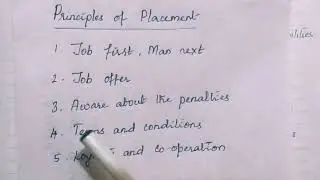 Principles of Placement
1. Job first, Man next
2. Job offer
3. Aware about the penalties
4. Terms and conditions
5. and co-operation